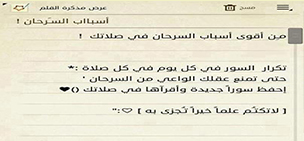 عرض مذكرة القلم
مسح
أسبااب السرحان !
من أقوى أسباب السرحان في صلاتك !
تكرار السور في كل يوم في كل صلاة :*
حتى تمنع عقلك الواعي من السرحان '
إحفظ سوراً جديدة وأقرآها في صلاتك ()❤
[ لاتكتُم علماً خيراً تُجزى به ] ♡:"